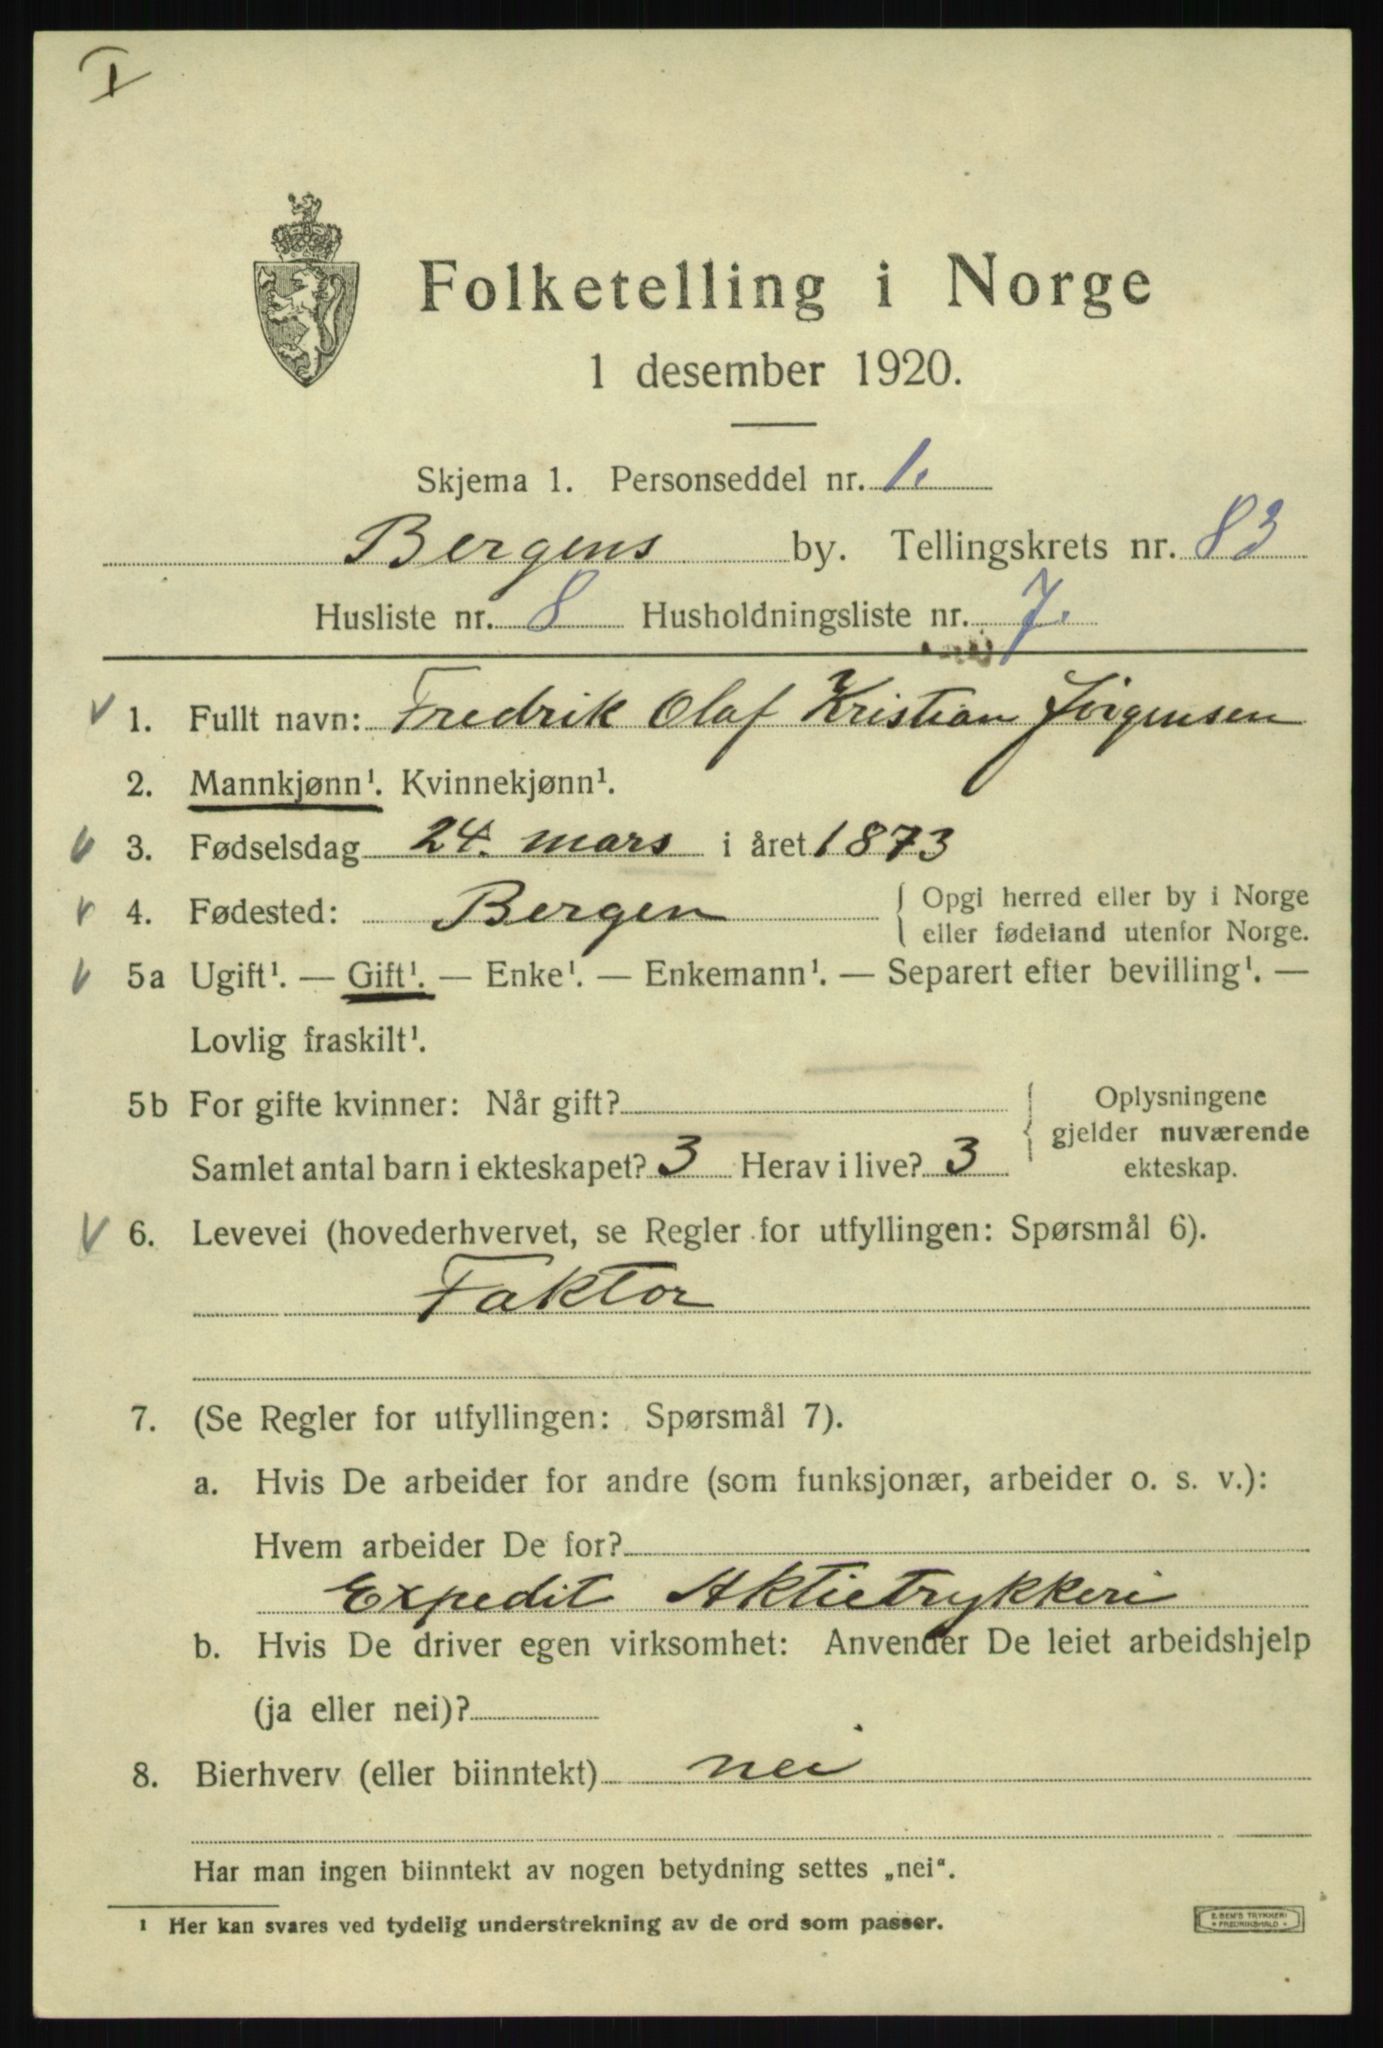 I
Folketelling i Norge
1 desember 1920.
Skjema 1. Personseddel nr. 1.
Bergens by. Tellingskrets nr. 83
Husliste nr. 8 Husholdningsliste nr. 7.
1. Fullt navn: Fredrik Olaf Kristian Jörgensen
2. Mannkjønn¹. Kvinnekjønn¹.
3. Fødselsdag 24. mars i året 1873
4. Fødested: Bergen { Opgi herred eller by i Norge
eller fødeland utenfor Norge.
5a Ugift¹. — Gift¹. — Enke¹. — Enkemann¹. — Separert efter bevilling¹. —
Lovlig fraskilt¹.
5b For gifte kvinner: Når gift? { Oplysningene
gjelder nuværende
Samlet antal barn i ekteskapet? 3 Herav i live? 3 ekteskap.
6. Levevei (hovederhvervet, se Regler for utfyllingen: Spørsmål 6).
Faktor
7. (Se Regler for utfyllingen: Spørsmål 7).
a. Hvis De arbeider for andre (som funksjonær, arbeider o. s. v.):
Hvem arbeider De for?
Expedit Aktietrykkeri
b. Hvis De driver egen virksomhet: Anvender De leiet arbeidshjelp
(ja eller nei)?
8. Bierhverv (eller biinntekt) nei
Har man ingen biinntekt av nogen betydning settes „nei“.
¹ Her kan svares ved tydelig understrekning av de ord som passer.
E. SEM'S TRYKKERI
• FREDRIKSHALD •